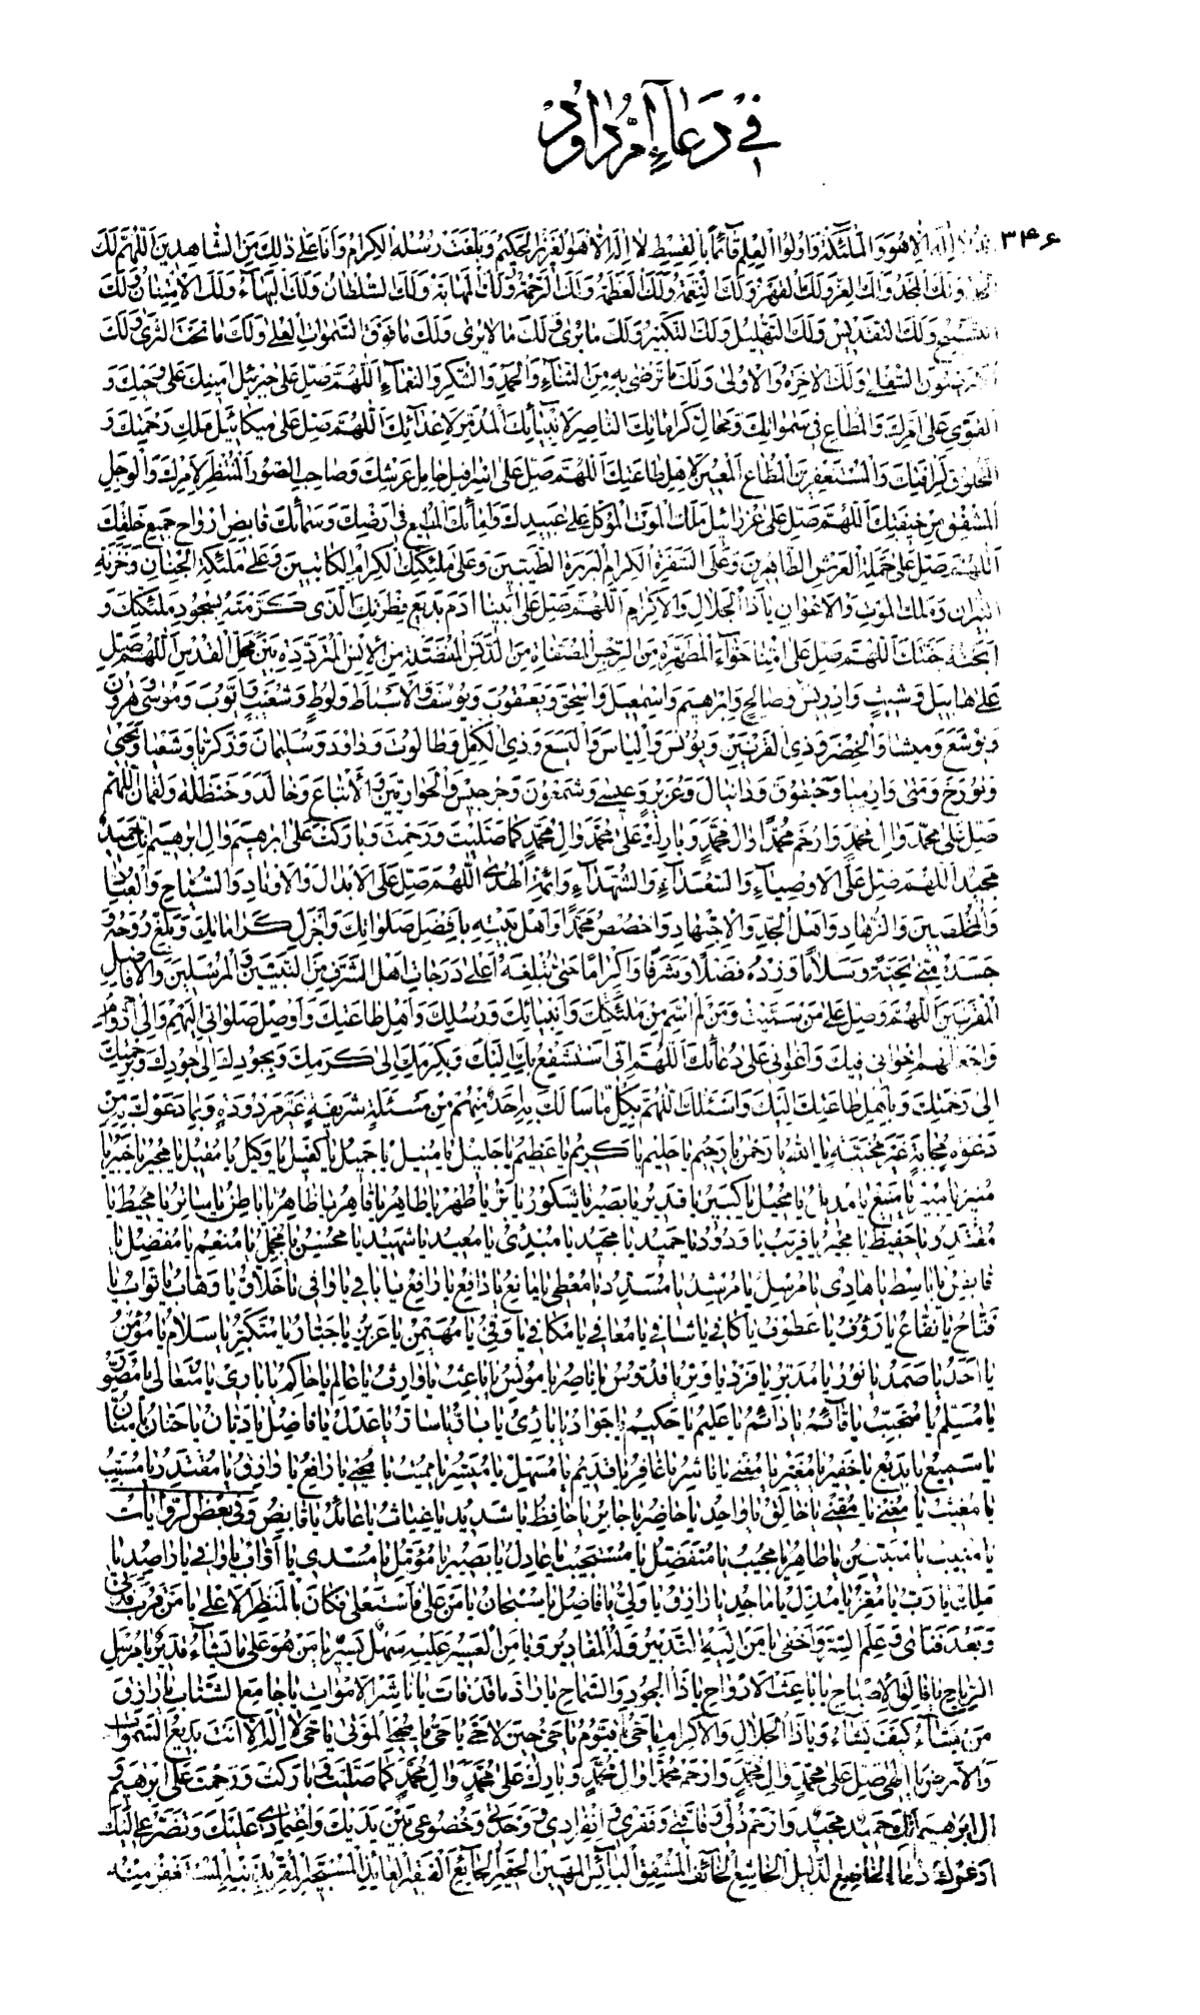 في دعاء أم داود
٣٤۶
لا إله إلا هو والملئكة وأولوا العلم قائما بالقسط لا إله إلا هو العزيز الحكيم وبلغت رسله الكرام وأنا على ذلك من الشاهدين اللهم لك
الحمد ولك المجد ولك العز ولك القهر ولك النعمة ولك العظمة ولك الرحمة ولك المهابة ولك السلطان ولك البهاء ولك الامتنان ولك
التسبيح ولك التقديس ولك التهليل ولك التكبير ولك ما يرى ولك ما لا يرى ولك ما فوق السموات العلى ولك ما تحت الثرى ولك
الأرضون السفلى ولك الآخرة والأولى ولك ما ترضى به من الثناء والحمد والشكر والنعماء اللهم صل على جبرئيل أمينك على وحيك و
القوي على أمرك والمطاع في سمواتك ومحال كراماتك الناصر لأنبيائك المدمر لأعدائك اللهم صل على ميكائيل ملك رحمتك و
المخلوق لرأفتك والمستغفر المطاع المعين لأهل طاعتك اللهم صل على إسرافيل حامل عرشك وصاحب الصور المنتظر لأمرك والوجل
المشفق من خيفتك اللهم صل على عزرائيل ملك الموت الموكل على عبيدك وإمائك المطيع في أرضك وسمائك قابض أرواح جميع خلقك
اللهم صل على حملة العرش الطاهرين وعلى السفرة الكرام البررة الطيبين وعلى ملئكتك الكرام الكاتبين وعلى ملئكة الجنان وخزنة
النيران وملك الموت والأعوان يا ذا الجلال والإكرام اللهم صل على أبينا آدم بديع فطرتك الذي كرمته بسجود ملئكتك و
أبحته جنتك اللهم صل على أمنا حواء المطهرة من الرجس المصفاة من الدنس المفضلة من الإنس المترددة بين محل القدس اللهم صل
على هابيل وشيث وإدريس وصالح وإبرهيم وإسمعيل وإسحق ويعقوب ويوسف والأسباط ولوط وشعيب وأيوب وموسى وهرون
ويوشع وميشا والخضر وذي القرنين ويونس وإلياس واليسع وذي الكفل وطالوت وداود وسليمان وزكريا وشعيا ويحيى
وتورخ ومتى وإرميا وحيقوق ودانيال وعزير وعيسى وشمعون وجرجيس والحواريين والأتباع وخالد وحنظلة ولقمان اللهم
صل على محمد وآل محمد وارحم محمدا وآل محمد وبارك على محمد وآل محمد كما صليت ورحمت وباركت على إبرهيم وآل إبرهيم إنك حميد
مجيد اللهم صل على الأوصياء والسعداء والشهداء وأئمة الهدى اللهم صل على الأبدال والأوتاد والسياح والعباد
والمخلصين والزهاد وأهل الجد والاجتهاد واخصص محمدا وأهل بيته بأفضل صلواتك وأجزل كراماتك وبلغ روحه و
جسده مني تحية وسلاما وزده فضلا وشرفا وإكراما حتى تبلغه أعلى درجات أهل الشرف من النبيين والمرسلين والأفاضل
المقربين اللهم وصل على من سميت ومن لم أسم من ملئكتك وأنبيائك ورسلك وأهل طاعتك وأوصل صلواتي إليهم وإلى أرواحهم
واجعلهم إخواني فيك وأعواني على دعائك اللهم إني أستشفع بك إليك وبكرمك إلى كرمك وبجودك إلى جودك وبرحمتك
إلى رحمتك وبأهل طاعتك إليك وأسئلك اللهم بكل ما سألك به أحد منهم من مسئلة شريفة غير مردودة وبما دعوك به من
دعوة مجابة غير مخيبة يا الله يا رحمن يا رحيم يا حليم يا كريم يا عظيم يا جليل يا منيل يا جميل يا كفيل يا وكيل يا مقيل يا مجير يا خبير يا
منير يا مبير يا منيع يا مديل يا محيل يا كبير يا قدير يا بصير يا شكور يا بر يا طهر يا طاهر يا قاهر يا ظاهر يا باطن يا ساتر يا محيط يا
مقتدر يا حفيظ يا مجير يا قريب يا ودود يا حميد يا مجيد يا مبدئ يا معيد يا شهيد يا محسن يا مجمل يا منعم يا مفضل يا
قابض يا باسط يا هادي يا مرسل يا مرشد يا مسدد يا معطي يا مانع يا دافع يا رافع يا باقي يا واقي يا خلاق يا وهاب يا تواب يا
فتاح يا نفاع يا رؤوف يا عطوف يا كافي يا شافي يا معافي يا مكافي يا وفي يا مهيمن يا عزيز يا جبار يا متكبر يا سلام يا مؤمن
يا أحد يا صمد يا نور يا مدبر يا فرد يا وتر يا قدوس يا ناصر يا مونس يا باعث يا وارث يا عالم يا حاكم يا بارئ يا متعالي يا مصور
يا مسلم يا متحبب يا قائم يا دائم يا عليم يا حكيم يا جواد يا بارئ يا بار يا سار يا عدل يا فاضل يا ديان يا حنان يا منان
يا سميع يا بديع يا خفير يا مغير يا مغني يا ناشر يا غافر يا قديم يا مسهل يا ميسر يا مميت يا محيي يا رافع يا رازق يا مقتدر يا مسبب
يا مغيث يا مغني يا مقني يا خالق يا واحد يا حاضر يا جابر يا حافظ يا شديد يا غياث يا عائد يا قابض وفي بعض الروايات
يا منيب يا مبين يا طاهر يا مجيب يا متفضل يا مستجيب يا عادل يا بصير يا مؤمل يا مسدي يا أواب يا وافي يا راصد يا
ملك يا رب يا معز يا مذل يا ماجد يا رازق يا ولي يا فاضل يا سبحان يا من على فاستعلى فكان بالمنظر الأعلى يا من قرب فدنى
وبعد فنأى وعلم السر وأخفى يا من إليه التدبير وله المقادير ويا من العسير عليه سهل يسير يا من هو على ما يشاء قدير يا مرسل
الرياح يا فالق الإصباح يا باعث الأرواح يا ذا الجود والسماح يا راد ما قد فات يا ناشر الأموات يا جامع الشتات يا رازق
من يشاء كيف يشاء ويا ذا الجلال والإكرام يا حي يا قيوم يا حي حين لا حي يا حي يا محيي الموتى يا حي لا إله إلا أنت بديع السموات
والأرض يا إلهي صل على محمد وآل محمد وارحم محمدا وآل محمد وبارك على محمد وآل محمد كما صليت وباركت ورحمت على إبرهيم و
آل إبرهيم إنك حميد مجيد وارحم ذلي وفاقتي وفقري وانفرادي ووحدتي وخضوعي بين يديك واعتمادي عليك وتضرعي إليك
أدعوك دعاء الخاضع الذليل الخاشع الخائف المشفق البائس المهين الحقير الجائع الفقير العائذ المستجير المقر بذنبه المستغفر منه